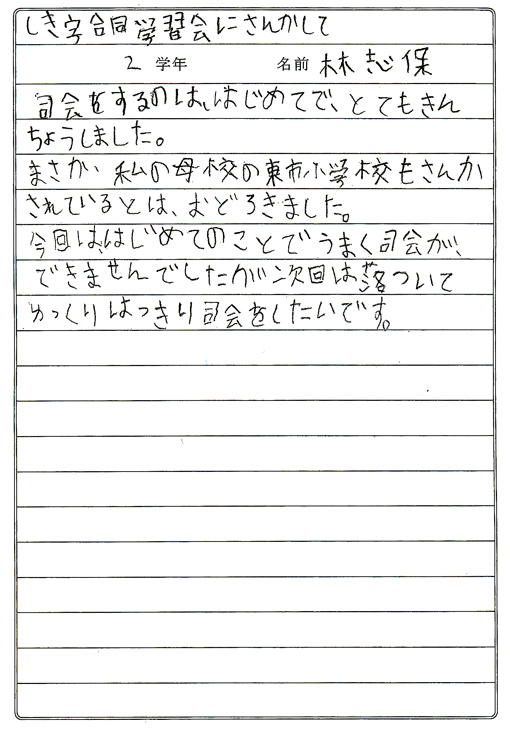 しき字合同学習会にさんかして
2 学年 名前 林志保
司会をするのは、はじめてで、とてもきん
ちょうしました。
まさか、私の母校の東市小学校もさんか
されているとは、おどろきました。
今回は、はじめてのことでうまく司会が、
できませんでしたが次回は落ついて
ゆっくりはっきり司会をしたいです。